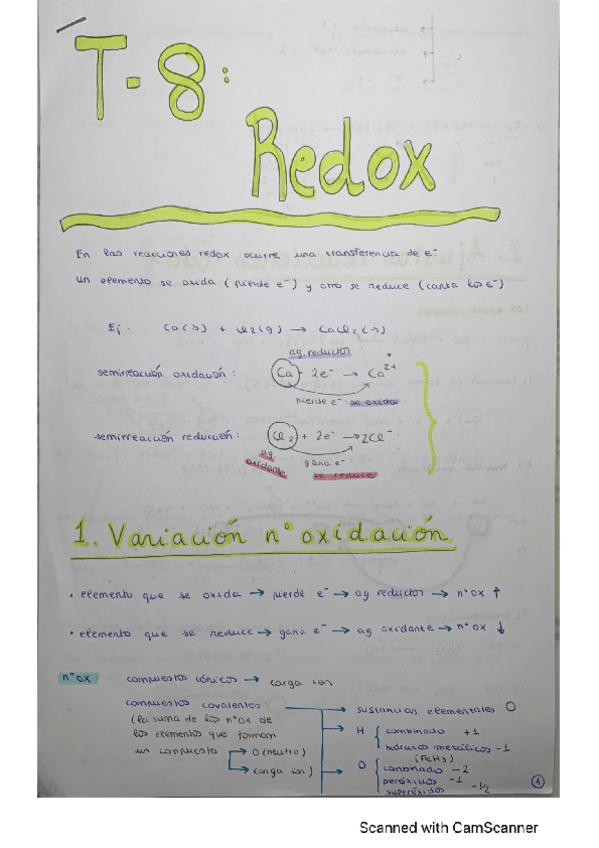 T-8:
Redox
En las reacciones redox ocurre una transferencia de e⁻
un elemento se oxida (pierde e⁻) y otro se reduce (capta los e⁻)
Ej: Ca(s) + Cl₂(g) → CaCl₂(s)
ag. reductor
semirreacción oxidación: Ca - 2e⁻ → Ca²⁺
pierde e⁻: se oxida
semirreacción reducción: Cl₂ + 2e⁻ → 2Cl⁻
ag oxidante
gana e⁻
se reduce
1. Variación nº oxidación
• elemento que se oxida → pierde e⁻ → ag reductor → nº ox ↑
• elemento que se reduce → gana e⁻ → ag oxidante → nº ox ↓
nº ox: compuestos iónicos → carga ion
compuestos covalentes: → sustancias elementales 0
(la suma de los nº ox de
los elementos que forman
un compuesto → 0 (neutro)
→ carga ion)
H { combinado +1
hidruros metálicos -1
(FeH₃)
O { combinado -2
peróxidos -1
superóxidos -1/2
1
Scanned with CamScanner